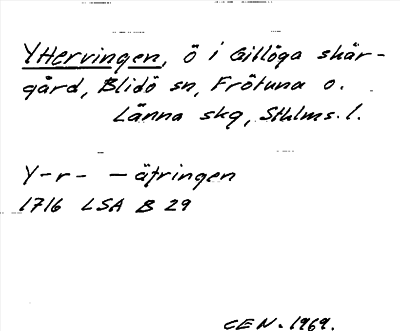 Yttervingen, ö i Gillöga skär-
gård, Blidö sn, Frötuna o.
Länna skg, Sthlms. l.
Y-r- - äfringen
1716 LSA B 29
CEN. 1969.